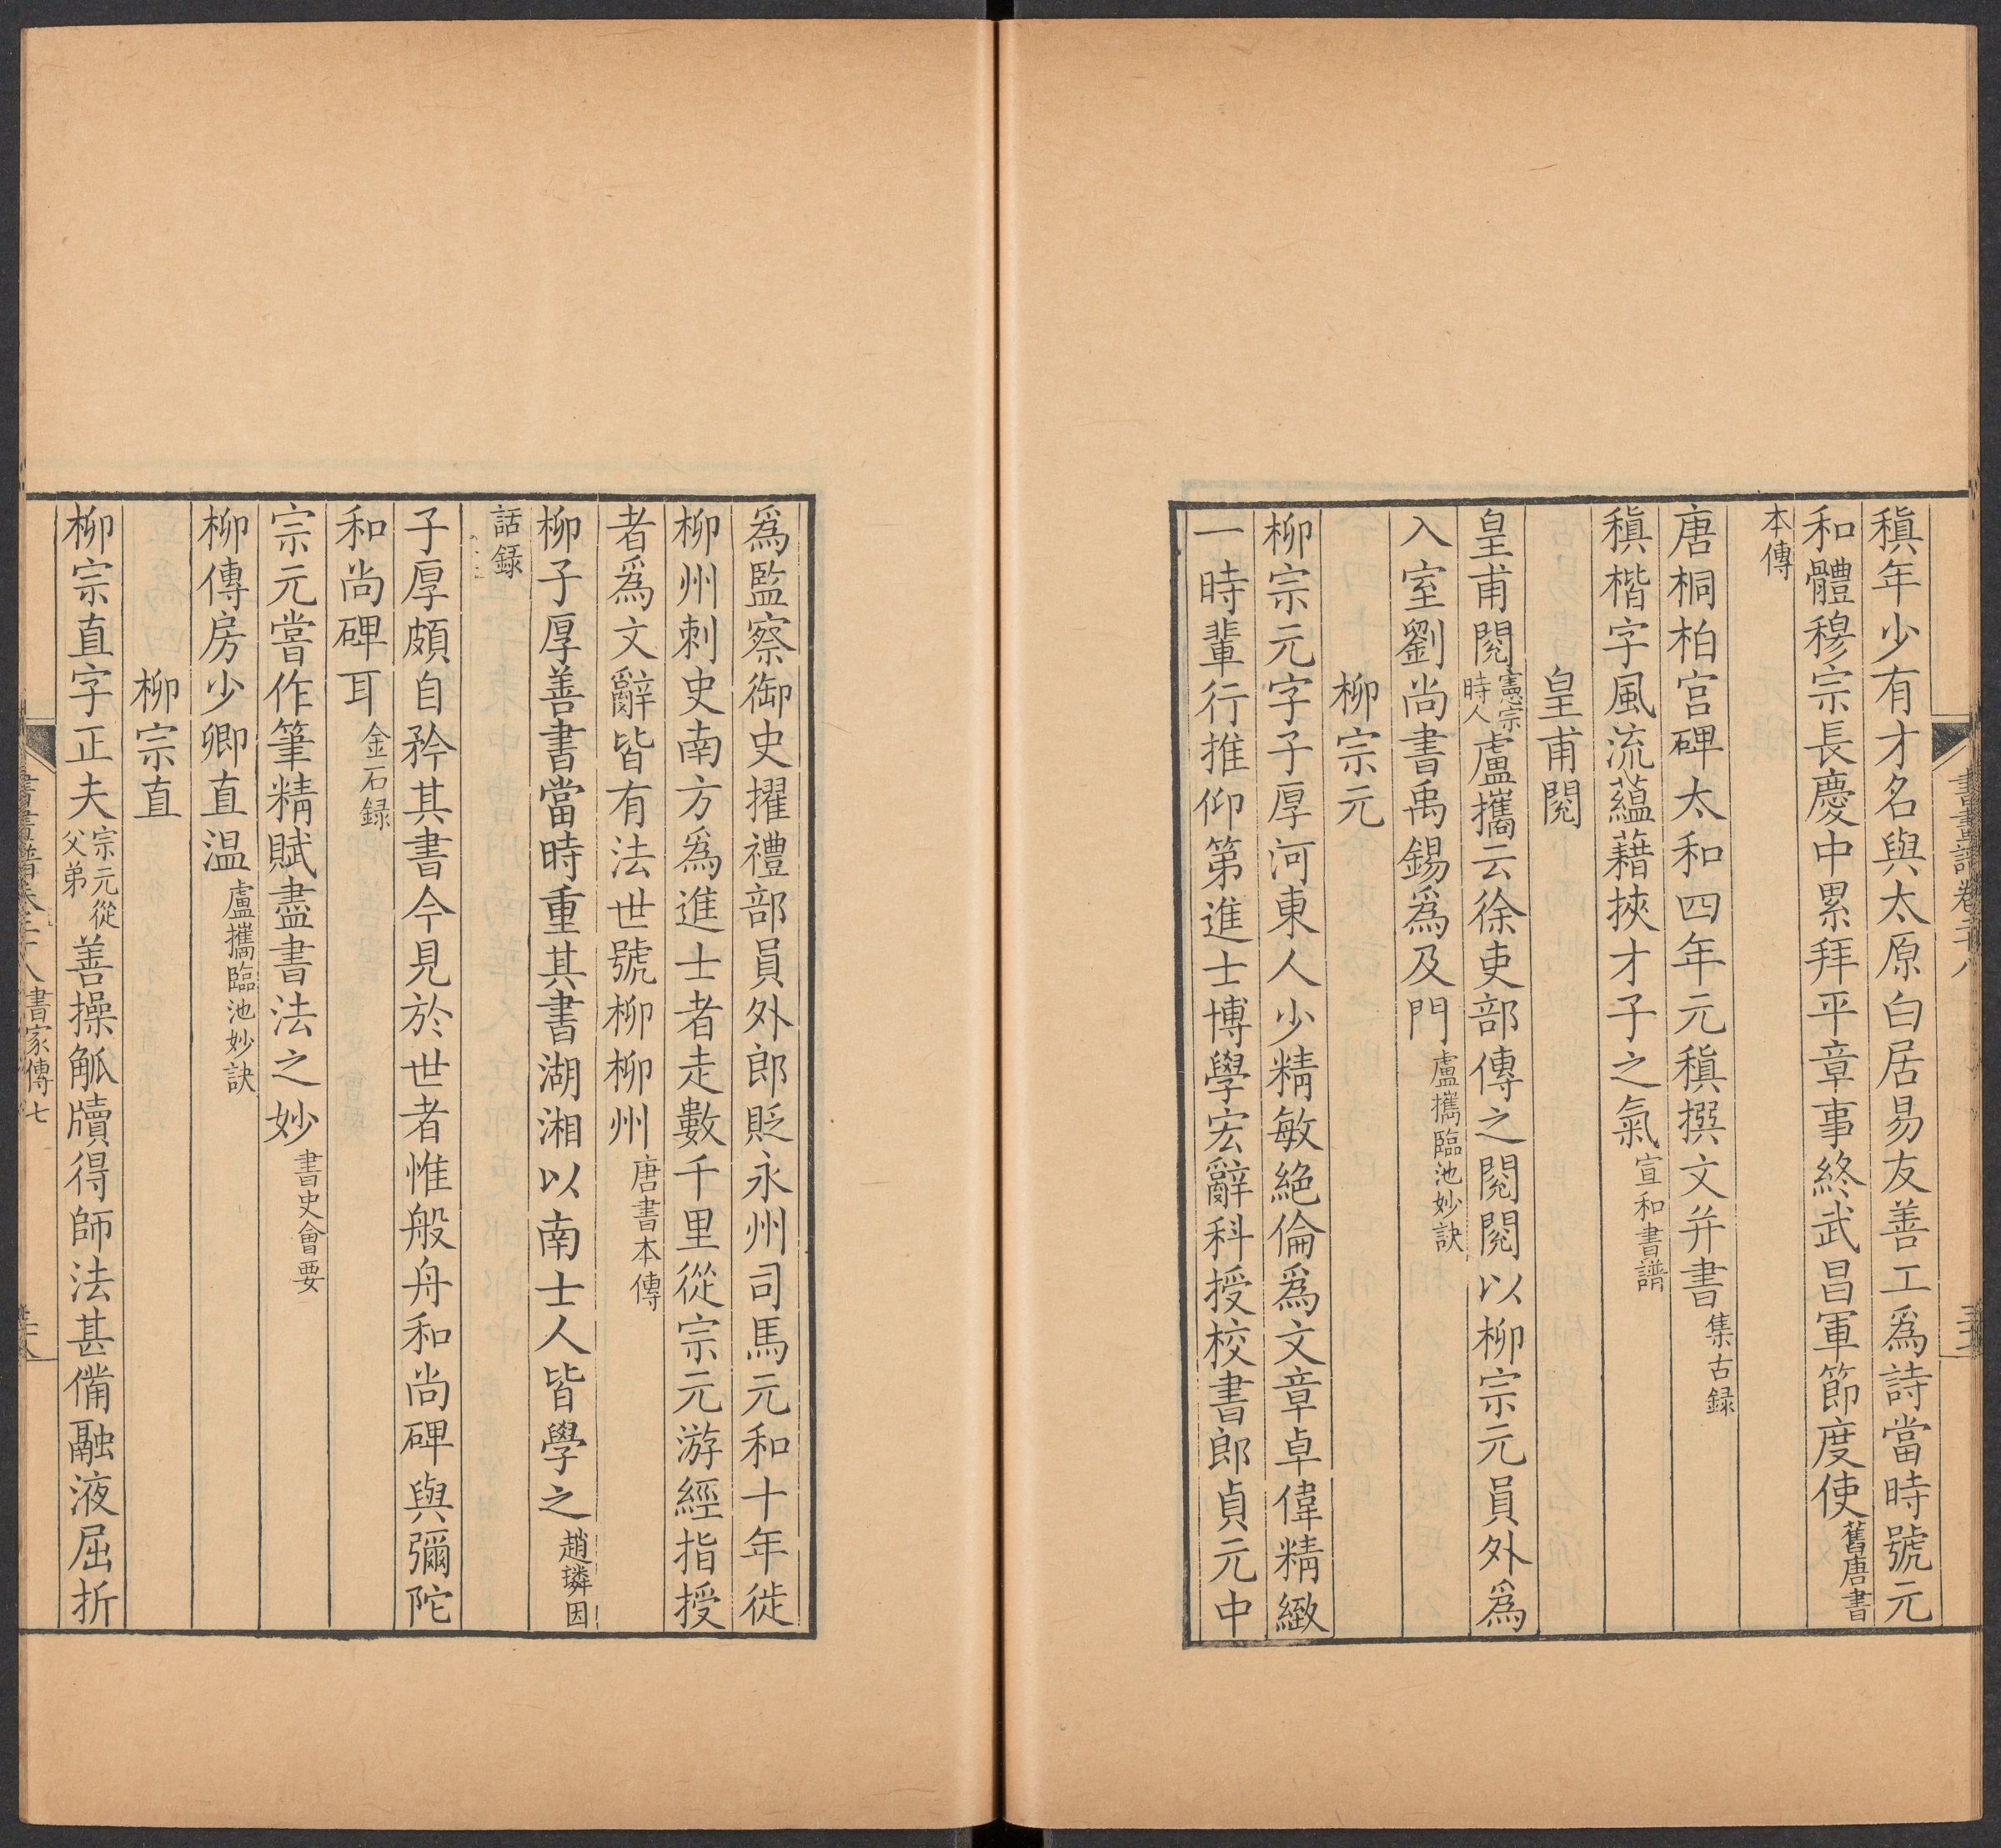 稹年少有才名與太原白居易友善工爲詩當時號元
和體穆宗長慶中累拜平章事終武昌軍節度使舊唐書
本傳
唐桐柏宮碑太和四年元稹撰文并書集古録
稹楷字風流蘊藉挾才子之氣宣和書譜
皇甫閱
皇甫閱憲宗時人盧攜云徐吏部傳之閱閱以柳宗元員外爲
入室劉尚書禹錫爲及門盧攜臨池妙訣
柳宗元
柳宗元字子厚河東人少精敏絶倫爲文章卓偉精緻
一時輩行推仰第進士博學宏辭科授校書郎貞元中
爲監察御史擢禮部員外郎貶永州司馬元和十年徙
柳州刺史南方爲進士者走數千里從宗元游經指授
者爲文辭皆有法世號柳柳州唐書本傳
柳子厚善書當時重其書湖湘以南士人皆學之趙璘因
話録
子厚頗自矜其書今見於世者惟般舟和尚碑與彌陀
和尚碑耳金石録
宗元嘗作筆精賦盡書法之妙書史會要
柳傳房少卿直温盧攜臨池妙訣
柳宗直
柳宗直字正夫宗元從父弟善操觚牘得師法甚備融液屈折
書家傳七